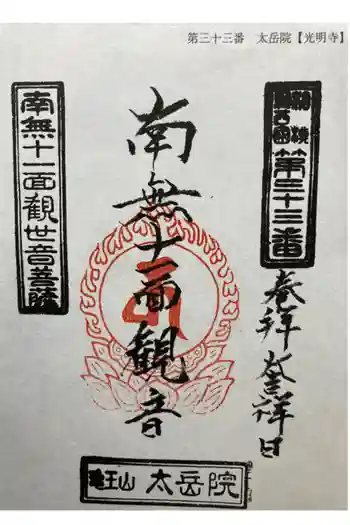 第三十三番　太岳院【光明寺】
第三十三番
奉拝 吉祥日
南無十一面観音
南無十一面観世音菩薩
龍王山 太岳院